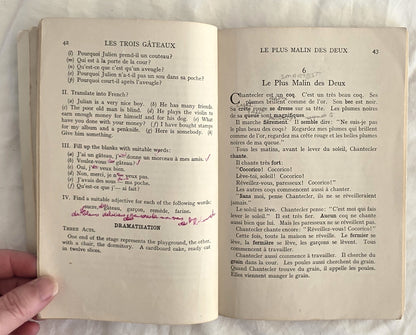 42 LES TROIS GÂTEAUX
(l) Pourquoi Julien prend-il un couteau?
(m) Qui est à la porte de la cour?
(n) Qu'est-ce que c'est qu'un aveugle?
(o) Pourquoi Julien n'a-t-il pas un son dans sa poche?
(p) Pourquoi court-il après l'aveugle?
II. Translate into French?
(a) Julien is a very nice boy. (b) He has many friends.
(c) The poor old man is blind. (d) He plays the violin to
earn enough money for himself and for his dog. (e) What
have you done with your money? (f) I have bought stamps
for my album and a penknife. (g) Here is somebody. (h)
Give him something.
III. Fill up the blanks with suitable words:
(a) J'ai un gâteau, j' donne un morceau à mes amis.
(b) Voulez-vous gâteau?
(c) Oui, merci, j'en veux bien.
(d) Non, merci, je n' veux pas.
(e) J'avais des sous ma poche.
(f) Qu'est-ce que je ai fait?
IV. Find a suitable adjective for each of the following words:
encre, gâteau, garçon, remède, farine.
DRAMATISATION
THREE ACTS.
One end of the stage represents the playground, the other,
with a chair, the dormitory. A cardboard cake, ready cut
in twelve slices.
LE PLUS MALIN DES DEUX 43
6
Le Plus Malin des Deux
Chantecler est un coq. C'est un très beau coq. Ses
plumes brillent comme de l'or. Son bec est noir.
Sa crête rouge se dresse sur sa tête. Les plumes noires
de sa queue sont magnifiques.
Il marche fièrement. Il semble dire: "Ne suis-je pas
le plus beau des coqs! Regardez mes plumes qui brillent
comme de l'or, regardez ma crête rouge et les belles plumes
de ma queue."
Tous les matins, avant le lever du soleil, Chantecler
chante.
Il chante très fort:
"Cocorico! Cocorico!
Lève-toi, soleil! Cocorico!
Réveillez-vous, paresseux! Cocorico!"
Les autres coqs commencent aussi à chanter.
"Sans moi, pense Chantecler, ils ne se réveilleraient
jamais."
Le soleil se lève. Chantecler pense: "C'est moi qui fais
lever le soleil." Il est très fier. Aucun coq ne chante
aussi bien que lui. Mais les paresseux ne se réveillent pas.
Chantecler chante encore: "Réveillez-vous! Cocorico!"
Cette fois, toute la maison se réveille. Le fermier se
lève, la fermière se lève, les garçons se lèvent. Tous
commencent à travailler.
Chantecler aussi commence à travailler. Il cherche du
grain dans la cour. Les poules aussi cherchent du grain.
Quand Chantecler trouve du grain, il appelle les poules.
Elles viennent manger le grain.